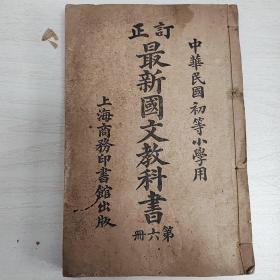 中華民國初等小學用
訂正
最新國文教科書
第六冊
上海商務印書館出版